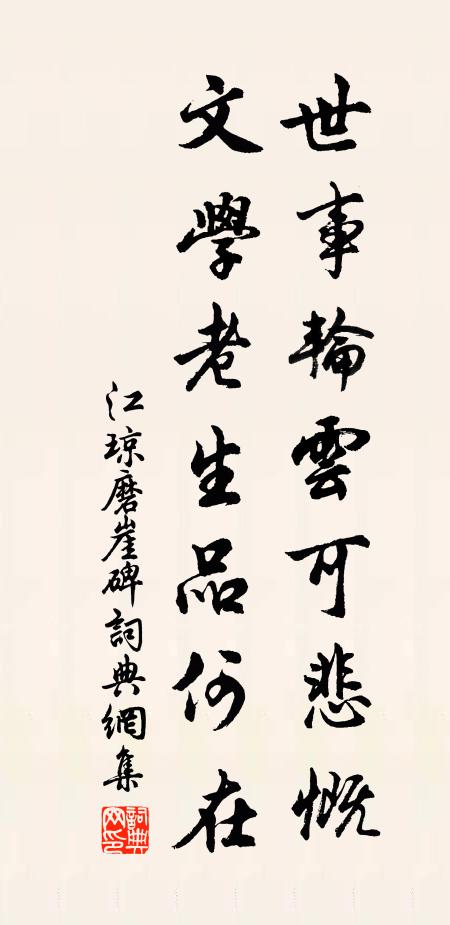 世事輪雲可悲慨
文學老生品何在
江琼磨崖碑詞典網集
詞典网印